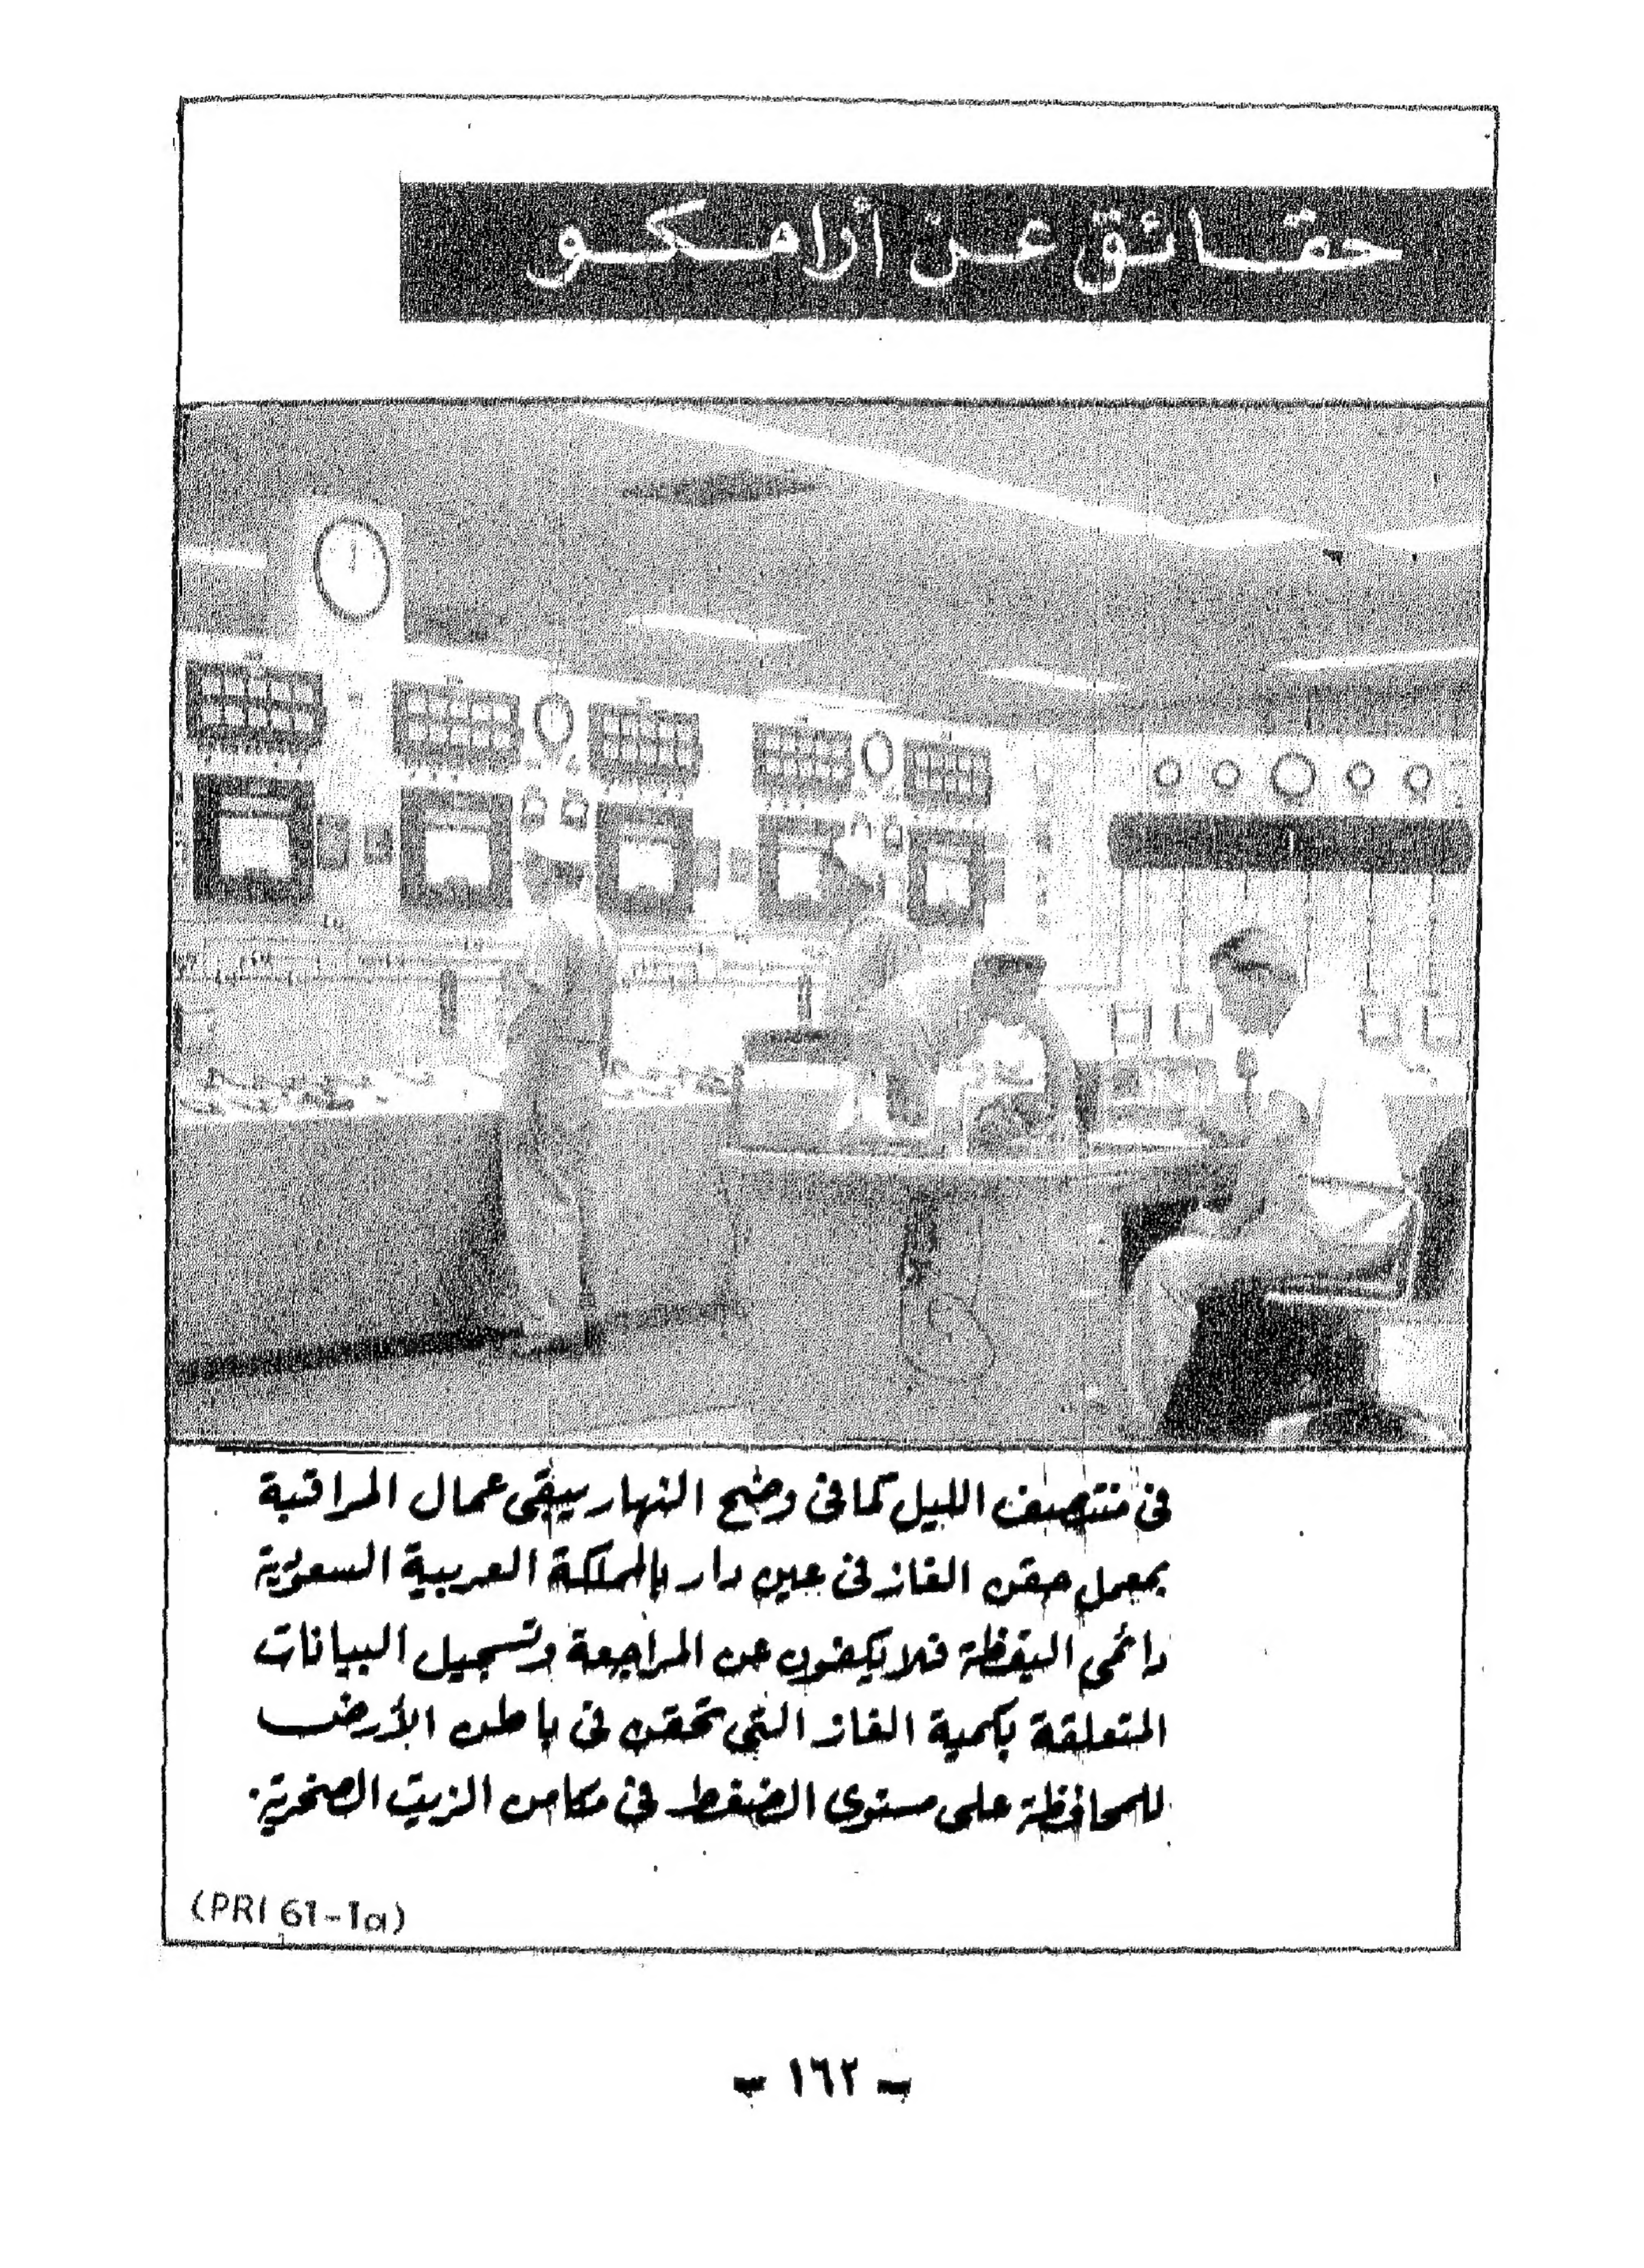 حقائق عن أرامكو
فى منتصف الليل كما فى وضح النهار يبقى عمال المراقبة
بمعمل حقن الغاز فى عين دار بالمملكة العربية السعودية
دائمى اليقظة فلا يكفون عن المراجعة وتسجيل البيانات
المتعلقة بكمية الغاز التى تحقن فى باطن الأرض
للمحافظة على مستوى الضغط فى مكامن الزيت الصخرية.
(PRI 61-1a)
- ١٦٢ -